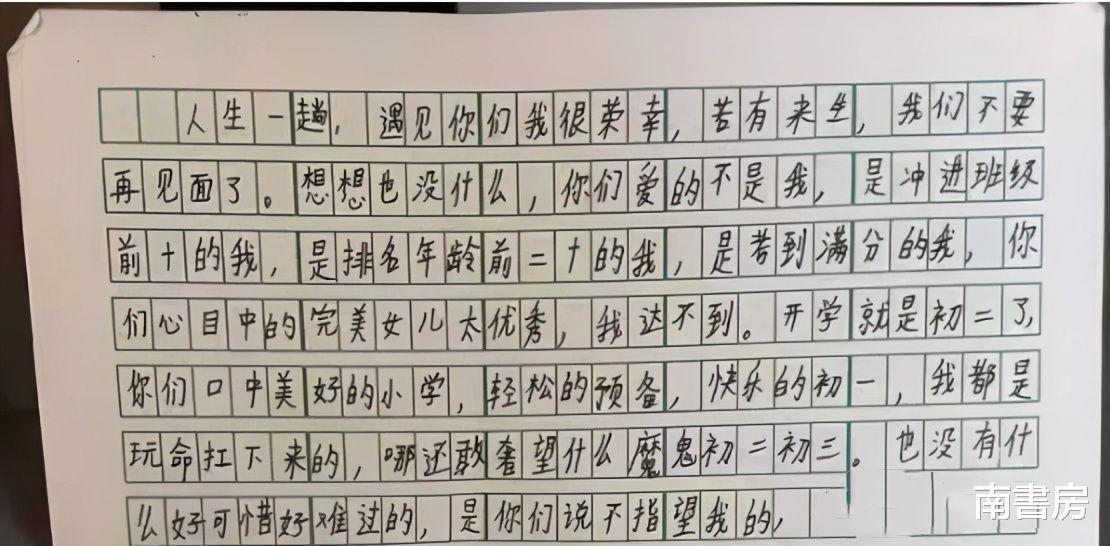 人生一趟，遇见你们我很荣幸，若有来生，我们不要
再见面了。想想也没什么，你们爱的不是我，是冲进班级
前十的我，是排名年龄前二十的我，是考到满分的我，你
们心目中的完美女儿太优秀，我达不到。开学就是初二了，
你们口中美好的小学，轻松的预备，快乐的初一，我都是
玩命扛下来的，哪还敢奢望什么魔鬼初二初三。也没有什
么好可惜好难过的，是你们说不指望我的，
南書房